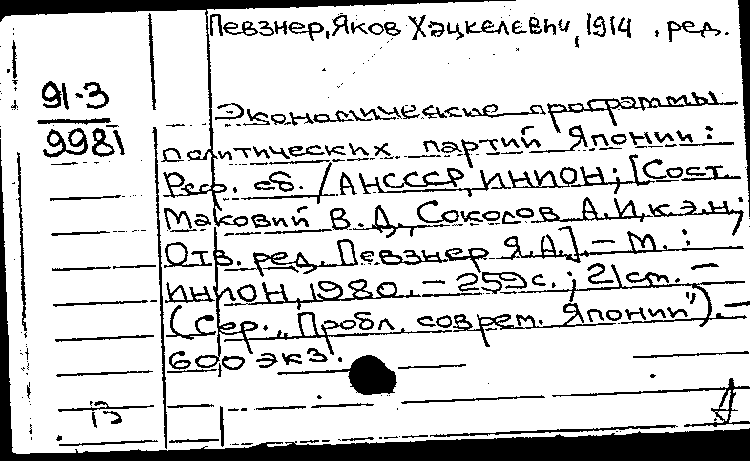 Певзнер, Яков Хацкелевич, 1914 , ред.
91-3
9981
Экономические программы
политических партий Японии:
Реф. сб. / АН СССР, ИНИОН; [Сост.
Маковий В.Д., Соколов А.И, к.э.н.;
Отв. ред. Певзнер Я.А.]. – М. :
ИНИОН, 1980. – 259 с. ; 21 ст. –
(Сер. „Пробл. соврем. Японии"). –
600 экз.
В